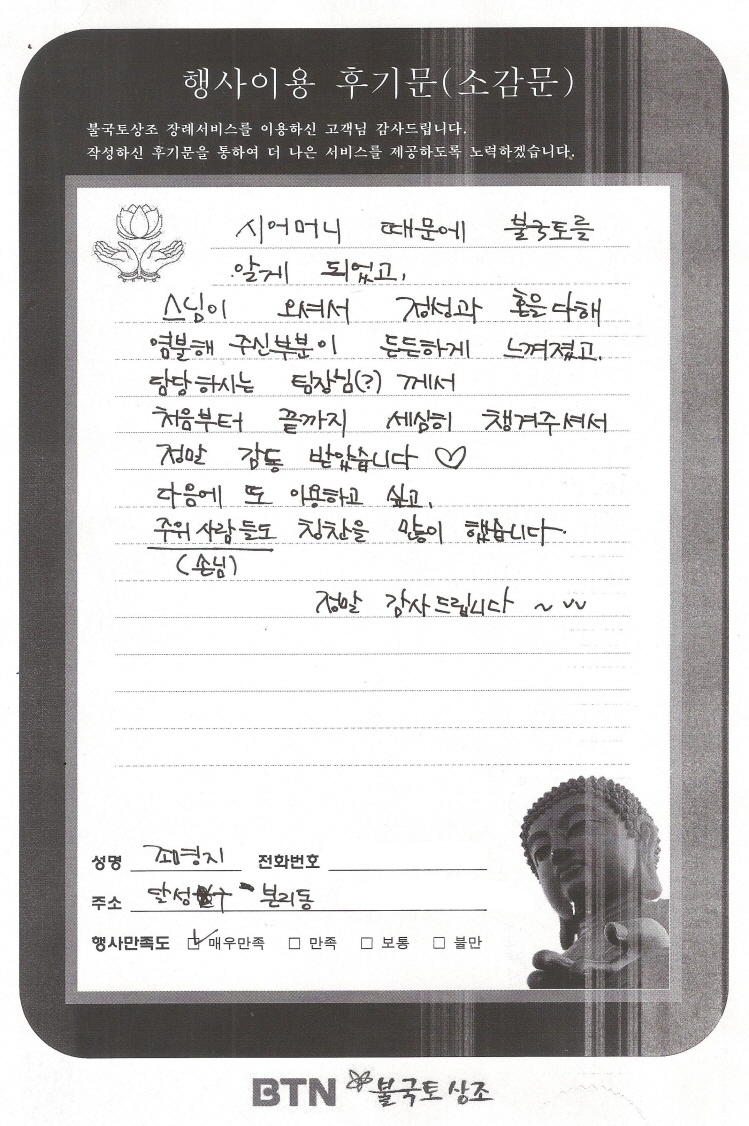 행사이용 후기문(소감문)
불국토상조 장례서비스를 이용하신 고객님 감사드립니다.
작성하신 후기문을 통하여 더 나은 서비스를 제공하도록 노력하겠습니다.
시어머니 때문에 불국토를
알게 되었고,
스님이 오셔서 정성과 혼을 다해
염불해 주신부분이 든든하게 느껴졌고.
담당하시는 팀장님(?) 께서
처음부터 끝까지 세심히 챙겨주셔서
정말 감동 받았습니다 ♡
다음에 또 이용하고 싶고,
주위 사람들도 칭찬을 많이 했습니다.
(손님)
정말 감사드립니다 ~
성명 영지 전화번호
주소 달성 본리동
행사만족도 ☑ 매우만족 □ 만족 □ 보통 □ 불만
BTN 불국토상조